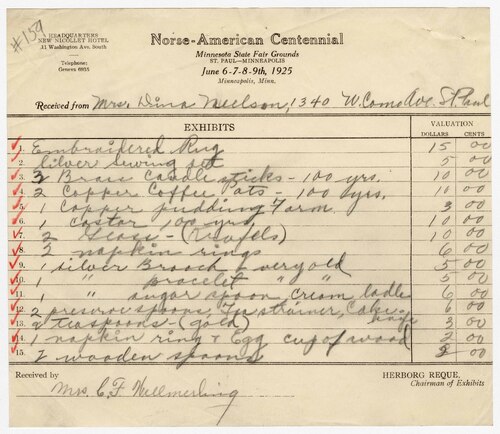 #159
HEADQUARTERS
NEW NICOLLET HOTEL
31 Washington Ave. South
Telephone:
Geneva 6955
Norse-American Centennial
Minnesota State Fair Grounds
ST. PAUL—MINNEAPOLIS
June 6-7-8-9th, 1925
Minneapolis, Minn.
Received from Mrs. Dina Neilson, 1340 W. Como Ave. St. Paul
EXHIBITS
VALUATION
DOLLARS CENTS
1. Embroidered Rug 15 00
2. Silver sewing set 5 00
3. 3 Brass Candlesticks - 100 yrs. 10 00
4. 2 Copper Coffee Pots - 100 yrs. 10 00
5. 1 Copper pudding Form 3 00
6. 1 castor 100 yrs 10 00
7. 2 (Towels) 10 00
8. 2 napkin rings 6 00
9. 1 silver Brooch very old 5 00
10. 1 " bracelet " " 5 00
11. 1 " sugar spoon cream ladle 6 00
12. 2 preserve spoons, Tea strainer, Cake knife 6 00
13. 2 teaspoons - (gold) 3 00
14. 1 napkin ring + Egg cup of wood 2 00
15. 2 wooden spoons 2 00
Received by
Mrs. C. F. Wellmerling
HERBORG REQUE,
Chairman of Exhibits